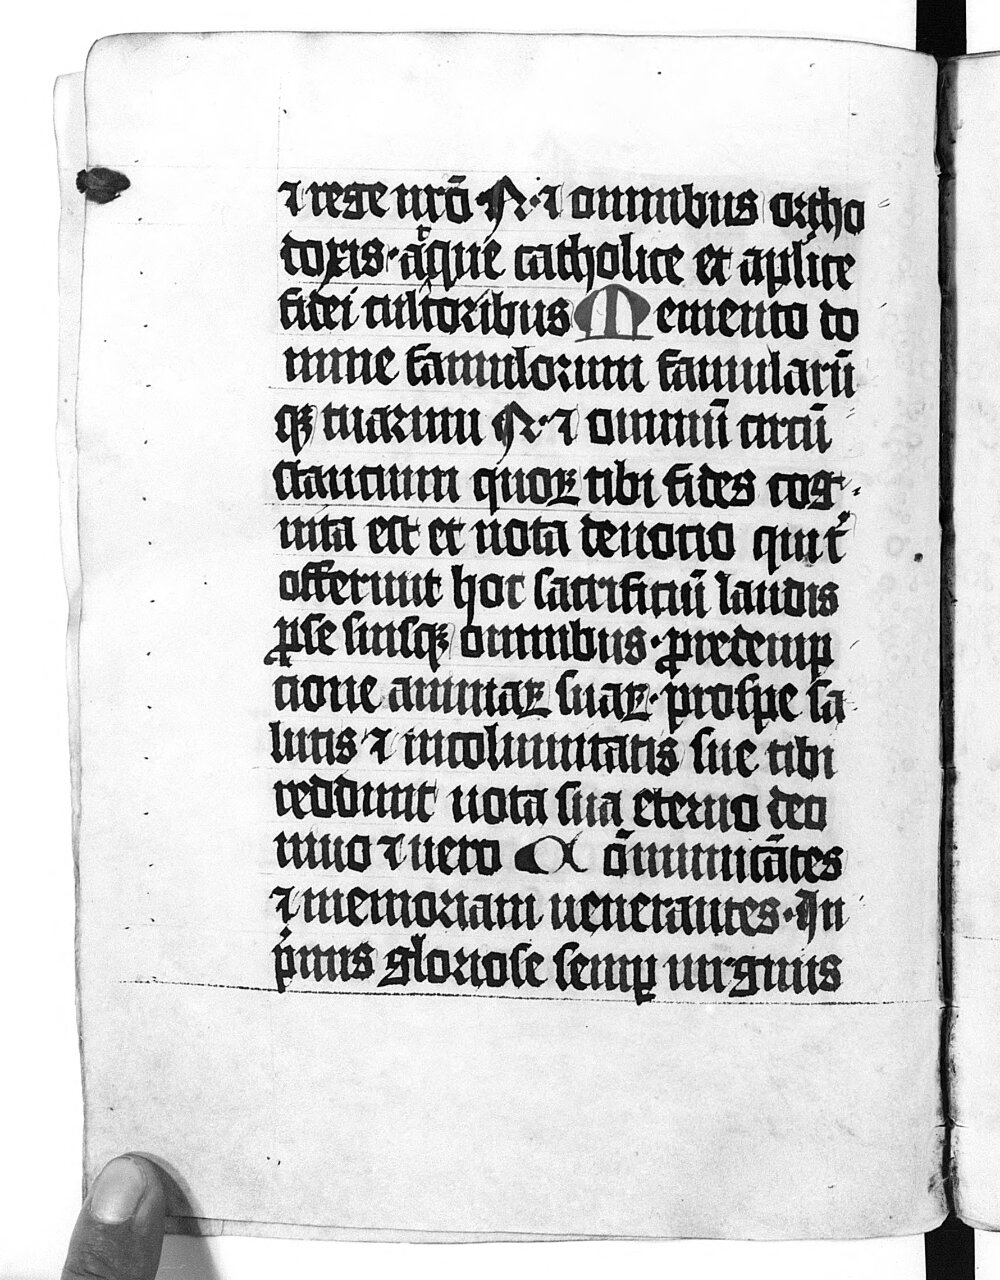 ⁊ rege nr̄o .N. ⁊ omnibus ortho
doxis. atque catholice et aplice
fidei cultoribus Memento do
mine famulorum famularū
qꝫ tuarum .N. ⁊ omniū circū
stantium quoꝝ tibi fides cog
nita est et nota deuotio qui t̄
offerunt hoc sacrificiū laudis
ꝓ se suisqꝫ omnibus. pro redemp
tione animaꝝ suaꝝ. pro spe sa
lutis ⁊ incolumitatis sue tibi
reddunt uota sua eterno deo
uiuo ⁊ uero Cōmunicātes
⁊ memoriam uenerantes. In
pͥmis gloriose semꝑ uirginis